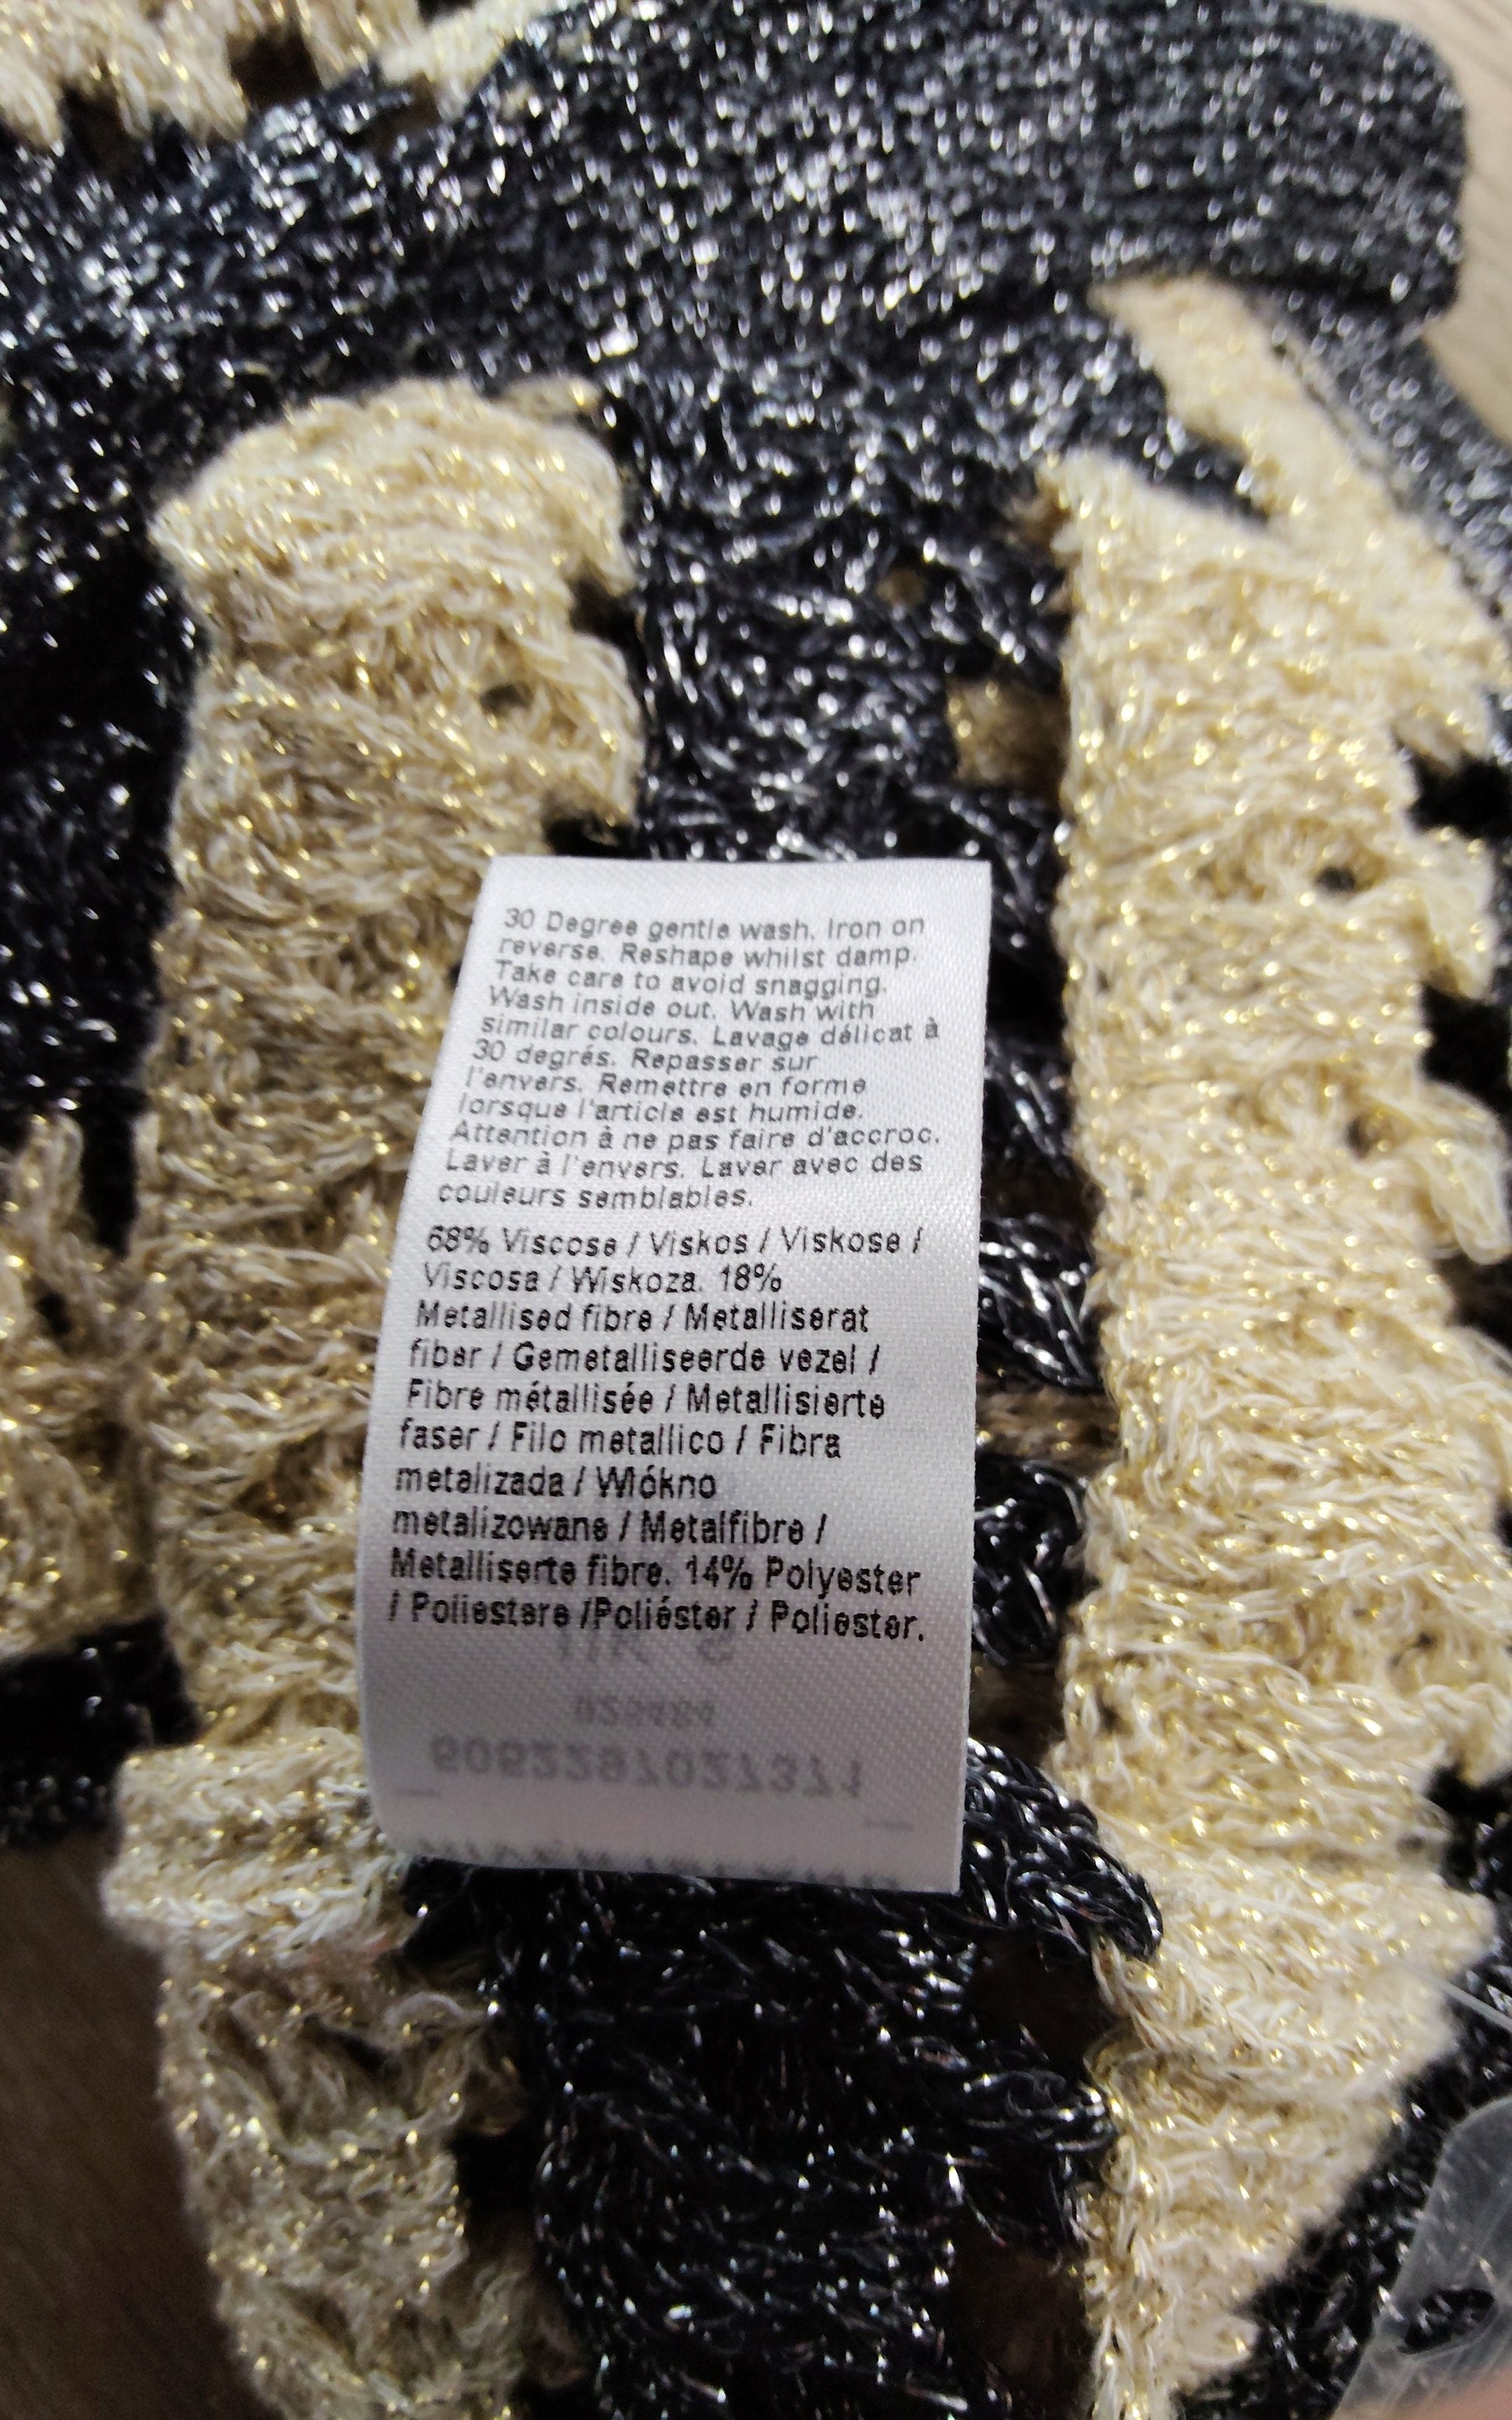 30 Degree gentle wash. Iron on
reverse. Reshape whilst damp.
Take care to avoid snagging.
Wash inside out. Wash with
similar colours. Lavage délicat à
30 degrés. Repasser sur
l'envers. Remettre en forme
lorsque l'article est humide.
Attention à ne pas faire d'accroc.
Laver à l'envers. Laver avec des
couleurs semblables.
68% Viscose / Viskos / Viskose /
Viscosa / Wiskoza. 18%
Metallised fibre / Metalliserat
fiber / Gemetalliseerde vezel /
Fibre métallisée / Metallisierte
faser / Filo metallico / Fibra
metalizada / Włókno
metalizowane / Metalfibre /
Metalliserte fibre. 14% Polyester
/ Poliestere /Poliéster / Poliester.